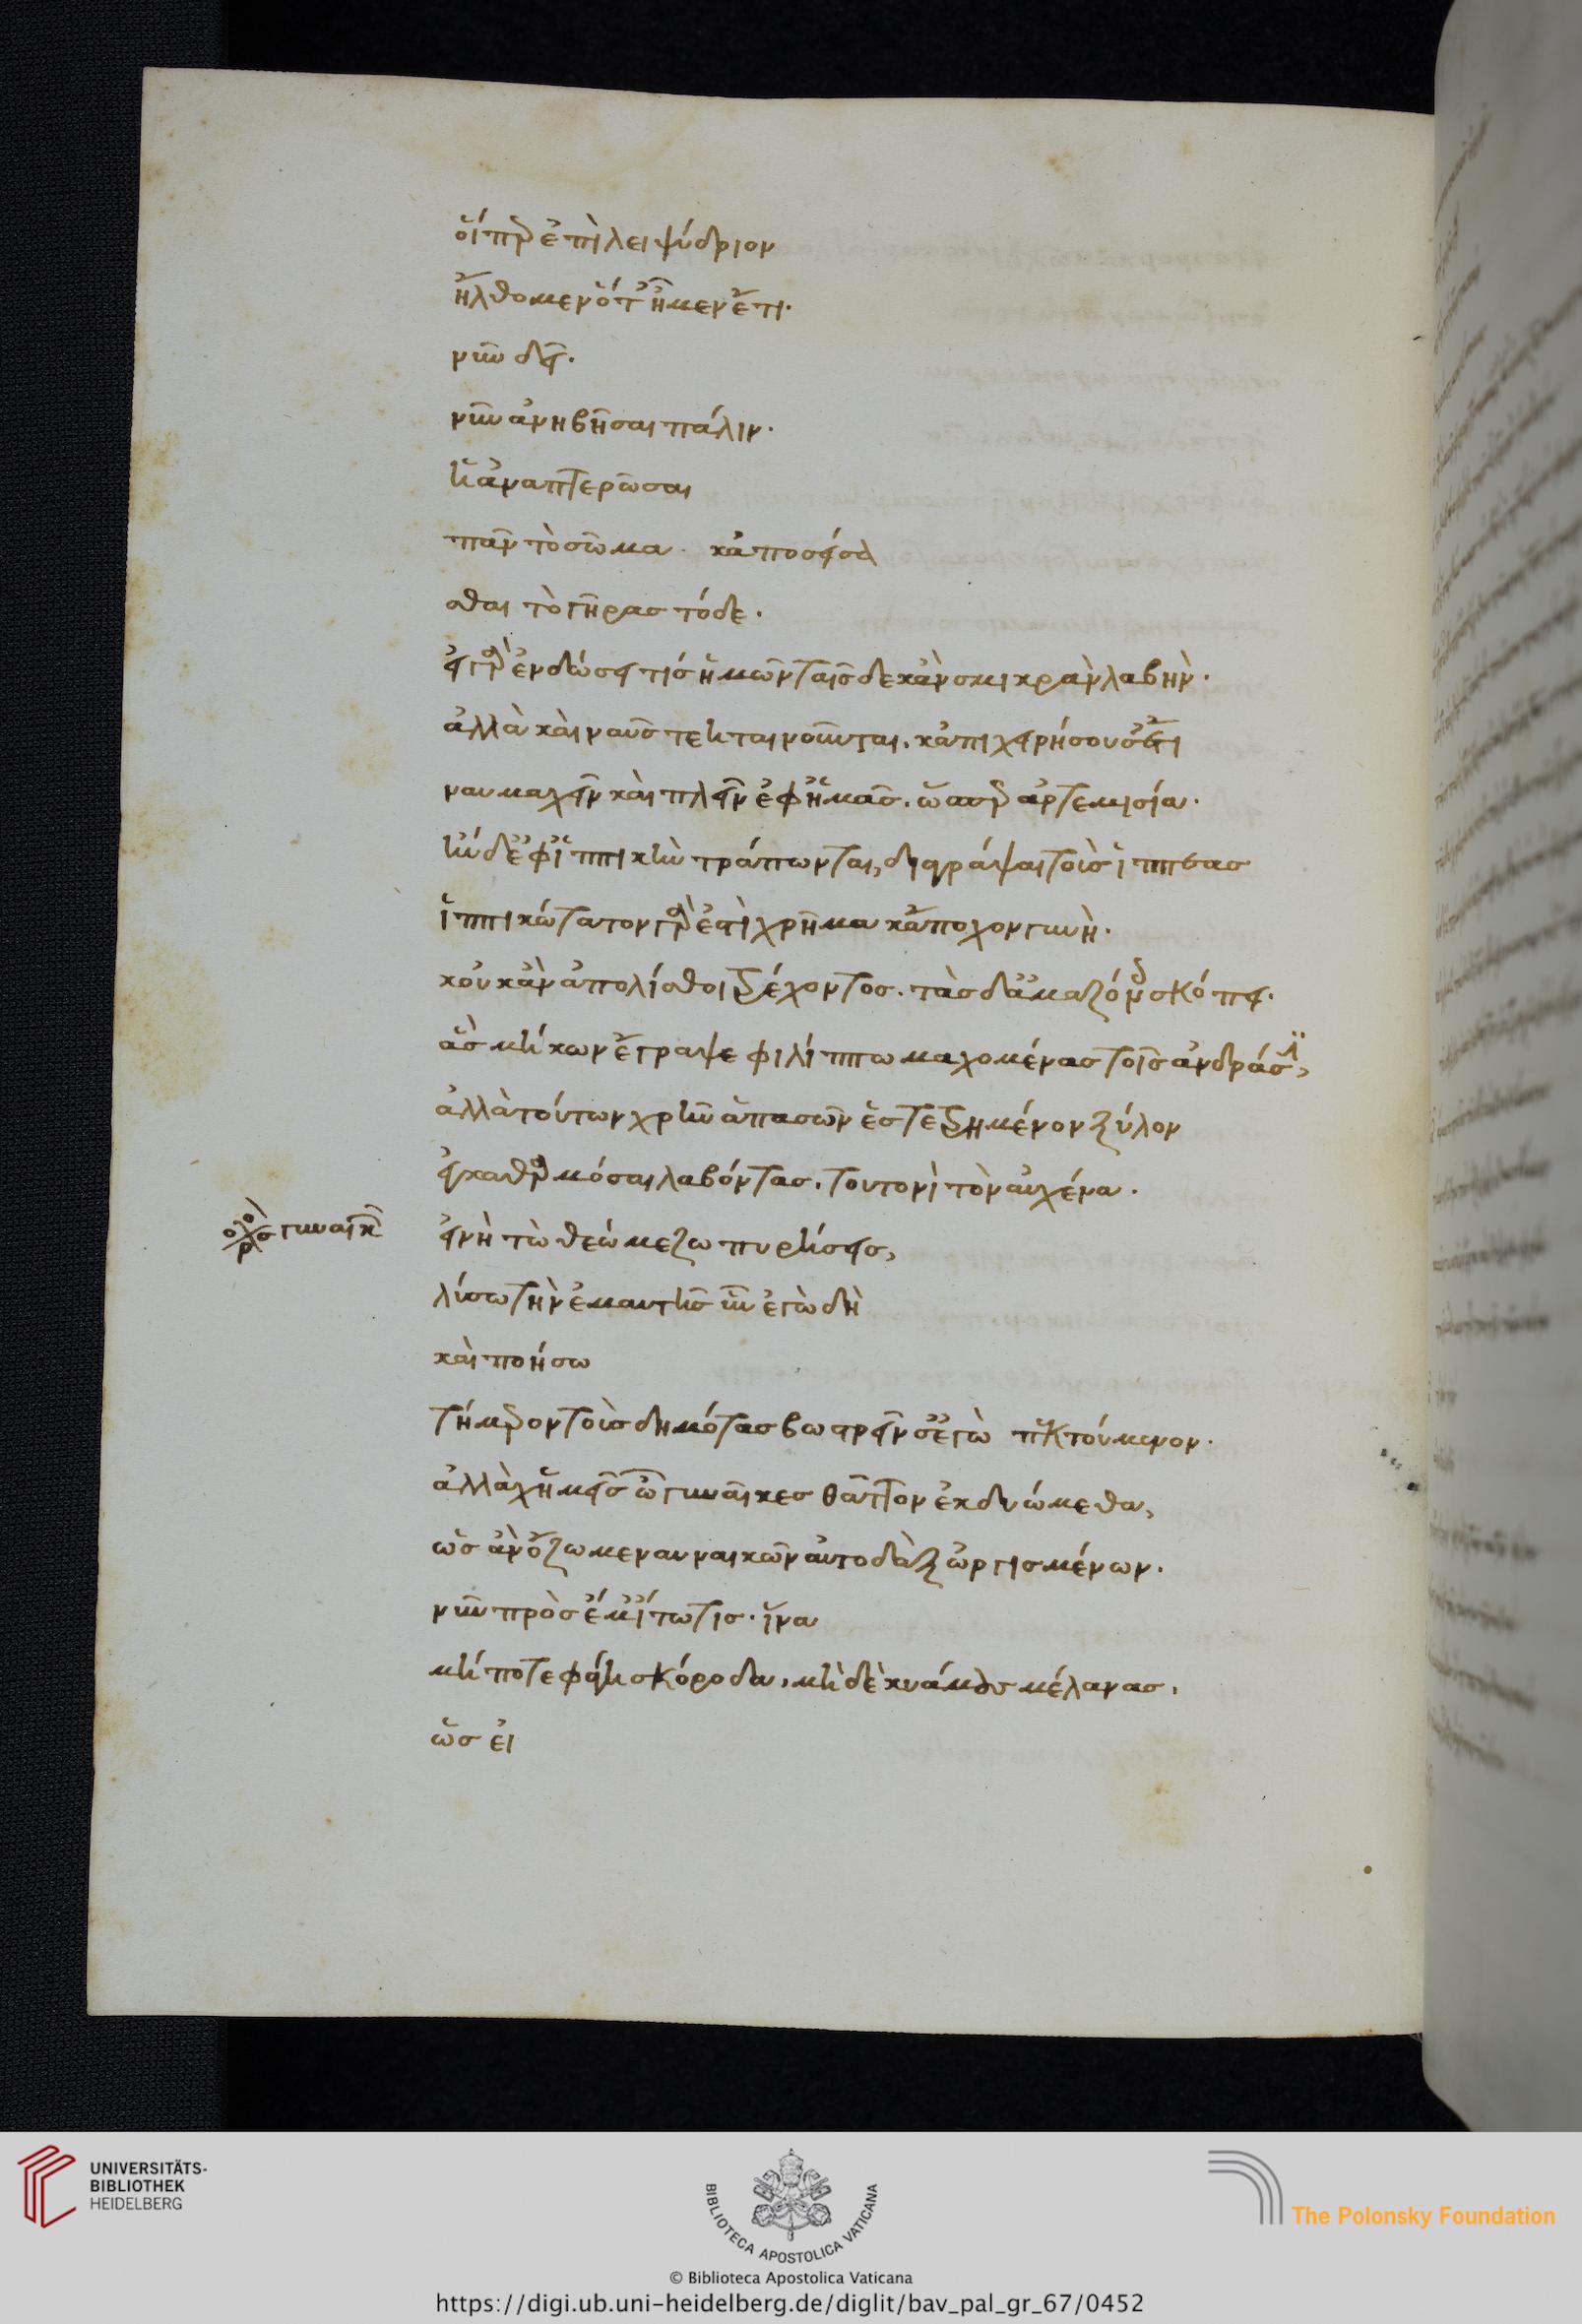 οἵπερ ἐπὶ λειψύδριον
ἤλθομεν ὅτ' ἦμεν ἔτι·
νῦν δεῖ·
νῦν ἀνηβῆσαι πάλιν·
κἀναπτερῶσαι
πᾶν τὸ σῶμα· κἀποσείσα
σθαι τὸ γῆρας τόδε·
εἰ γὰρ ἐνδώσει τίς ἡμῶν ταῖσδε κἂν σμικρὰν λαβὴν·
ἀλλὰ καὶ ναῦς τεκταινοῦνται. κἀπιχειρήσουσ' ἔτι
ναυμαχεῖν καὶ πλεῖν ἐφ' ἡμᾶς. ὥσπερ ἀρτεμισία·
ἢν δ' ἐφ' ἱππικὴν τράπωνται, διαγράψαι τοὺς ἱππέας
ἱππικώτατον γάρ ἐστὶ χρῆμα κἄποχον γυνὴ·
κοὐκ ἂν ἀπολίσθοι τρέχοντος. τὰς δ' ἀμαζόνας σκόπει·
ἃς μίκων ἔγραψε φιλίππω μαχομένας τοῖς ἀνδράσϊ,
ἀλλὰ τούτων χρῆν ἁπασῶν ἐς τετρημένον ξύλον
ἐγκαθαρμόσαι λαβόντας. τουτονὶ τὸν αὐχένα·
χορὸς γυναικῶν
εἰ νὴ τὼ θεώ με ζωπυρήσεις,
λύσω τὴν ἐμαυτῆς ὗν ἐγὼ δὴ
καὶ ποιήσω
τήμερον τοὺς δημότας βωστρεῖν σ' ἐγὼ πεκτούμενον·
ἀλλὰ χἠμεῖς ὦ γυναῖκες θᾶττον ἐκδυώμεθα,
ὡς ἂν ὄζωμεν γυναικῶν αὐτοδὰξ ὠργισμένων·
νῦν πρὸς ἔμ' ἴτω τις· ἵνα
μή ποτε φάγη σκόροδα, μηδὲ κυάμους μέλανας,
ὡς εἰ
UNIVERSITÄTS-
BIBLIOTHEK
HEIDELBERG
BIBLIOTECA APOSTOLICA VATICANA
The Polonsky Foundation
© Biblioteca Apostolica Vaticana
https://digi.ub.uni-heidelberg.de/diglit/bav_pal_gr_67/0452